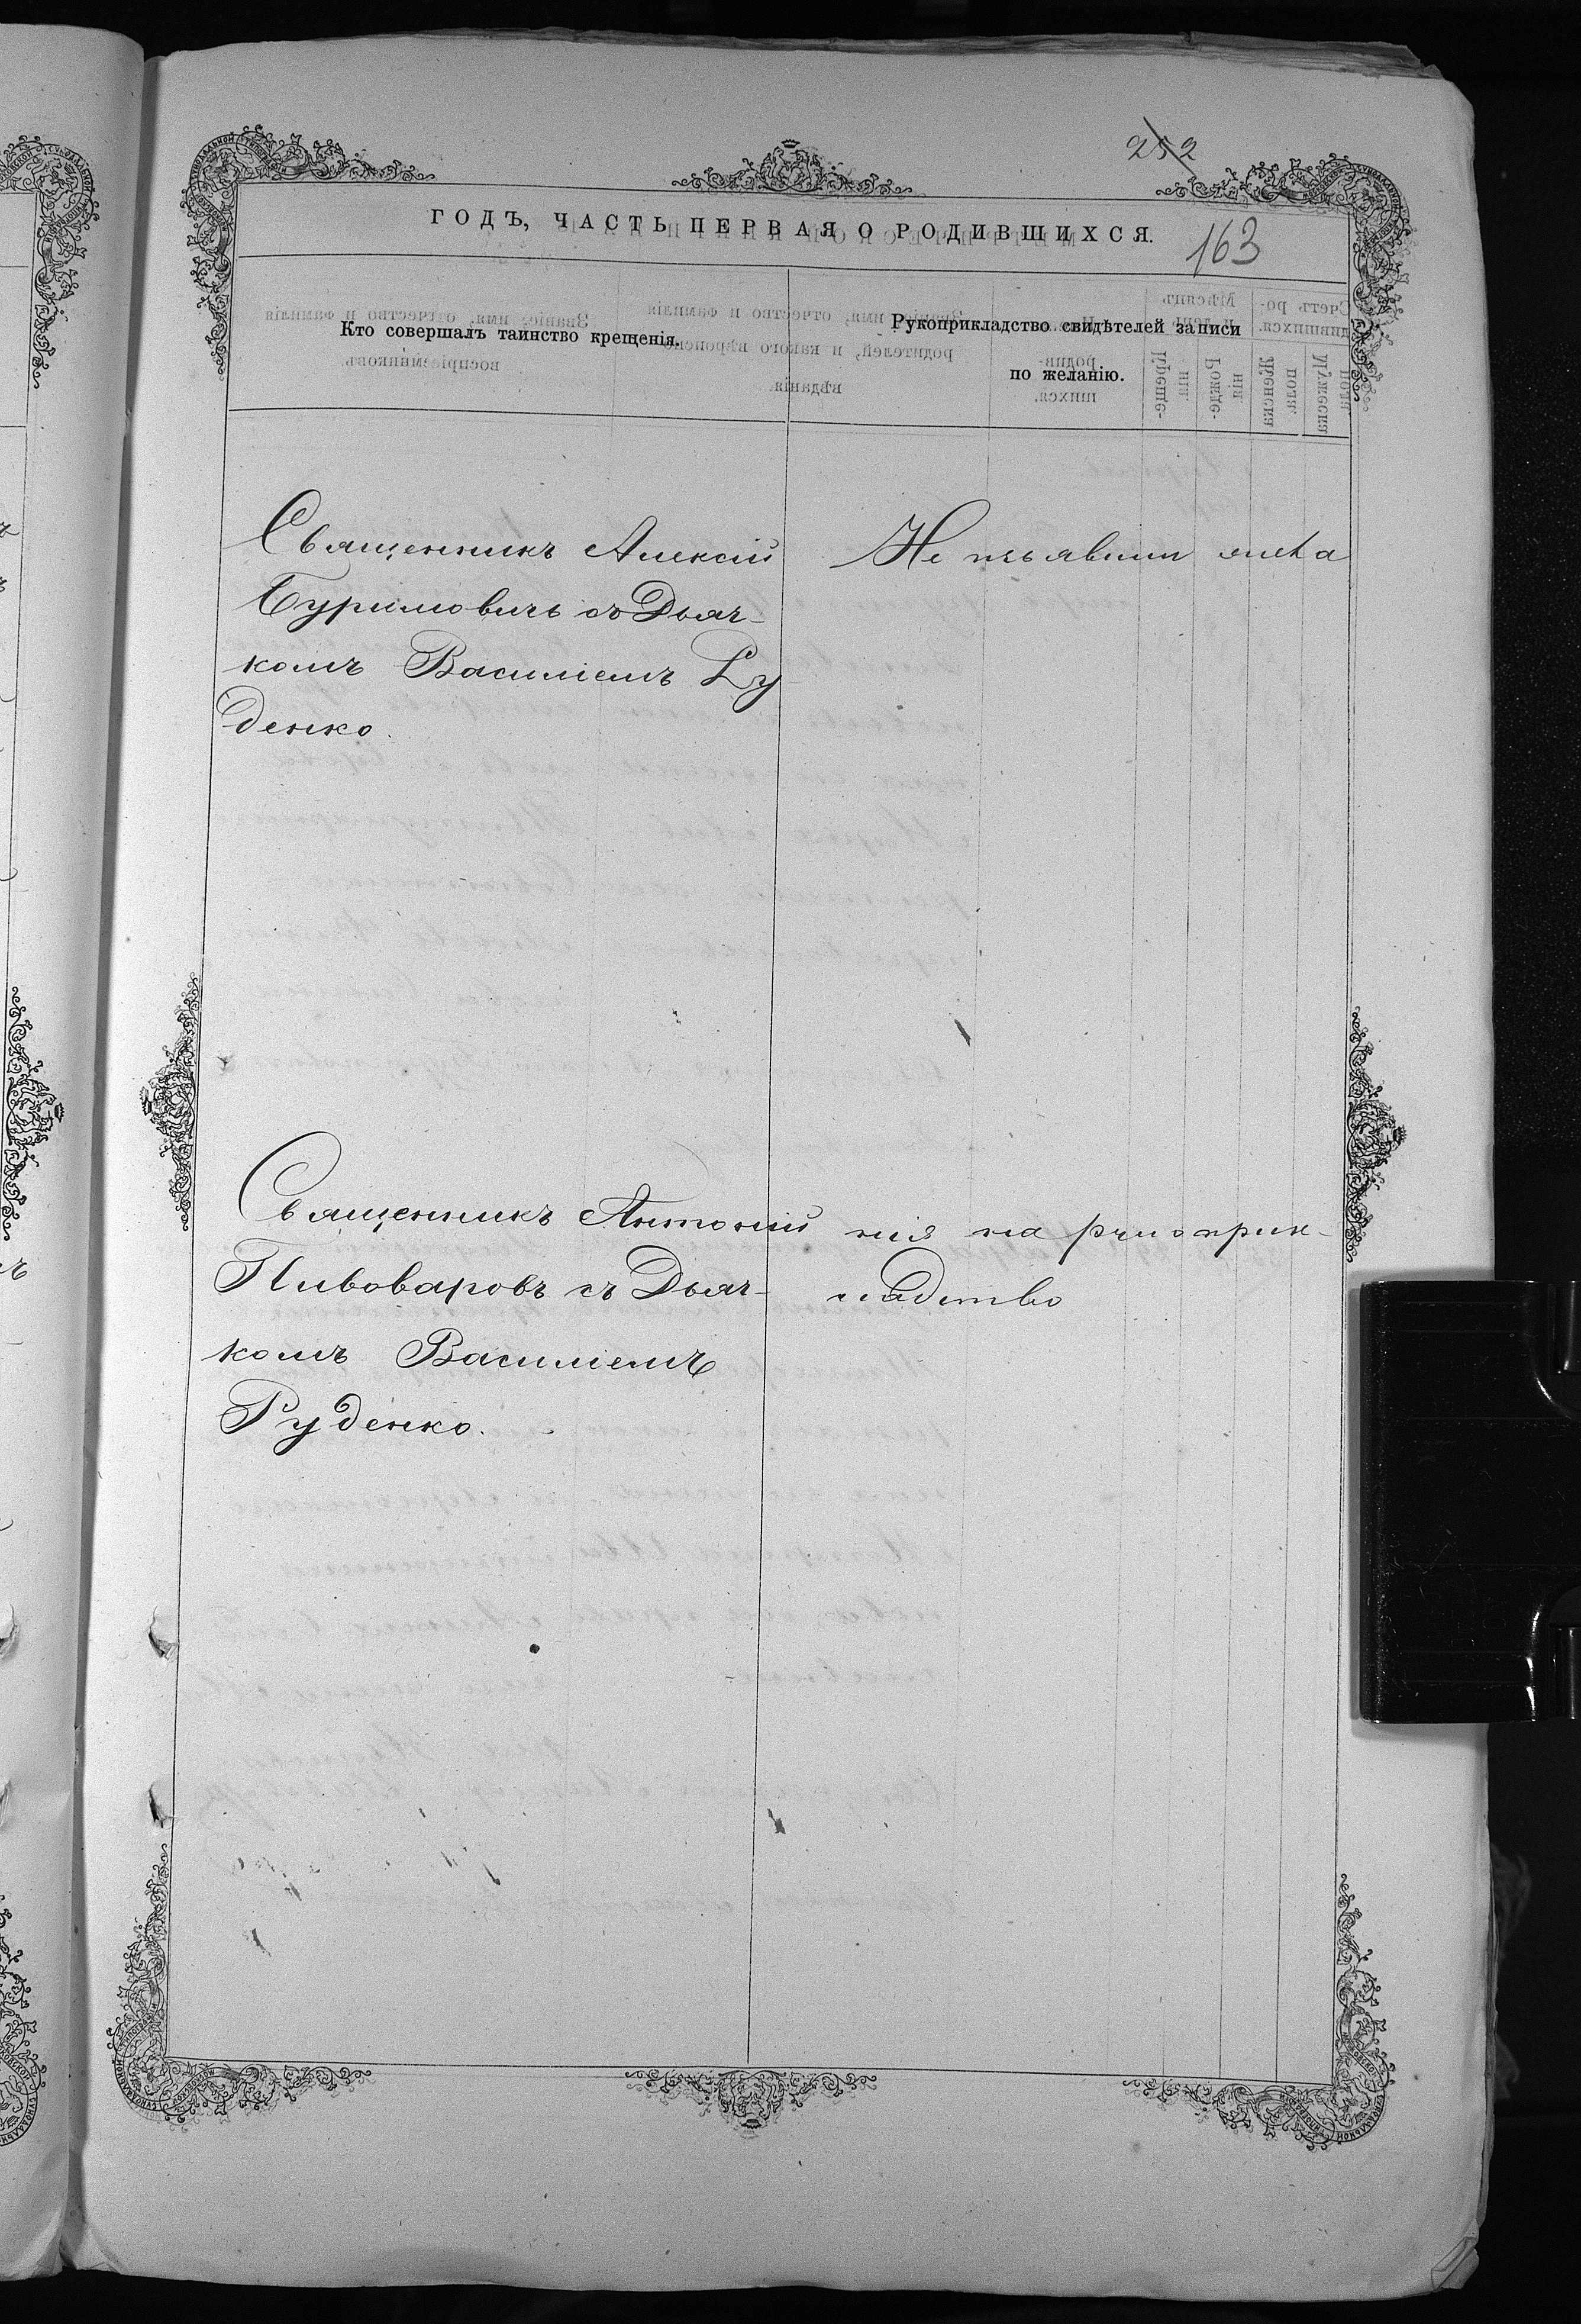 252
ГОДЪ, ЧАСТЬ ПЕРВАЯ О РОДИВШИХСЯ.
163
Кто совершалъ таинство крещенія.
Рукоприкладство свидѣтелей записи
по желанію.
Священникъ Алексій
Буримовичъ съ Дьяч-
комъ Василіемъ Ру
денко.
Не изъявили жела
Священникъ Антоній
Пивоваровъ съ Дьяч-
комъ Василіемъ
Руденко.
нія на рукоприк-
ладство